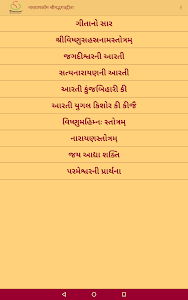 ગીતાનો સાર
શ્રીવિષ્ણુસહસ્રનામસ્તોત્રમ્
જગદીશ્વરની આરતી
સત્યનારાયણની આરતી
આરતી કુંજબિહારી કી
આરતી યુગલ કિશોર કી કીજૈ
વિષ્ણુમહિમ્નઃ સ્તોત્રમ્
નારાયણસ્તોત્રમ્
જય આદ્યા શક્તિ
પરમેશ્વરની પ્રાર્થના